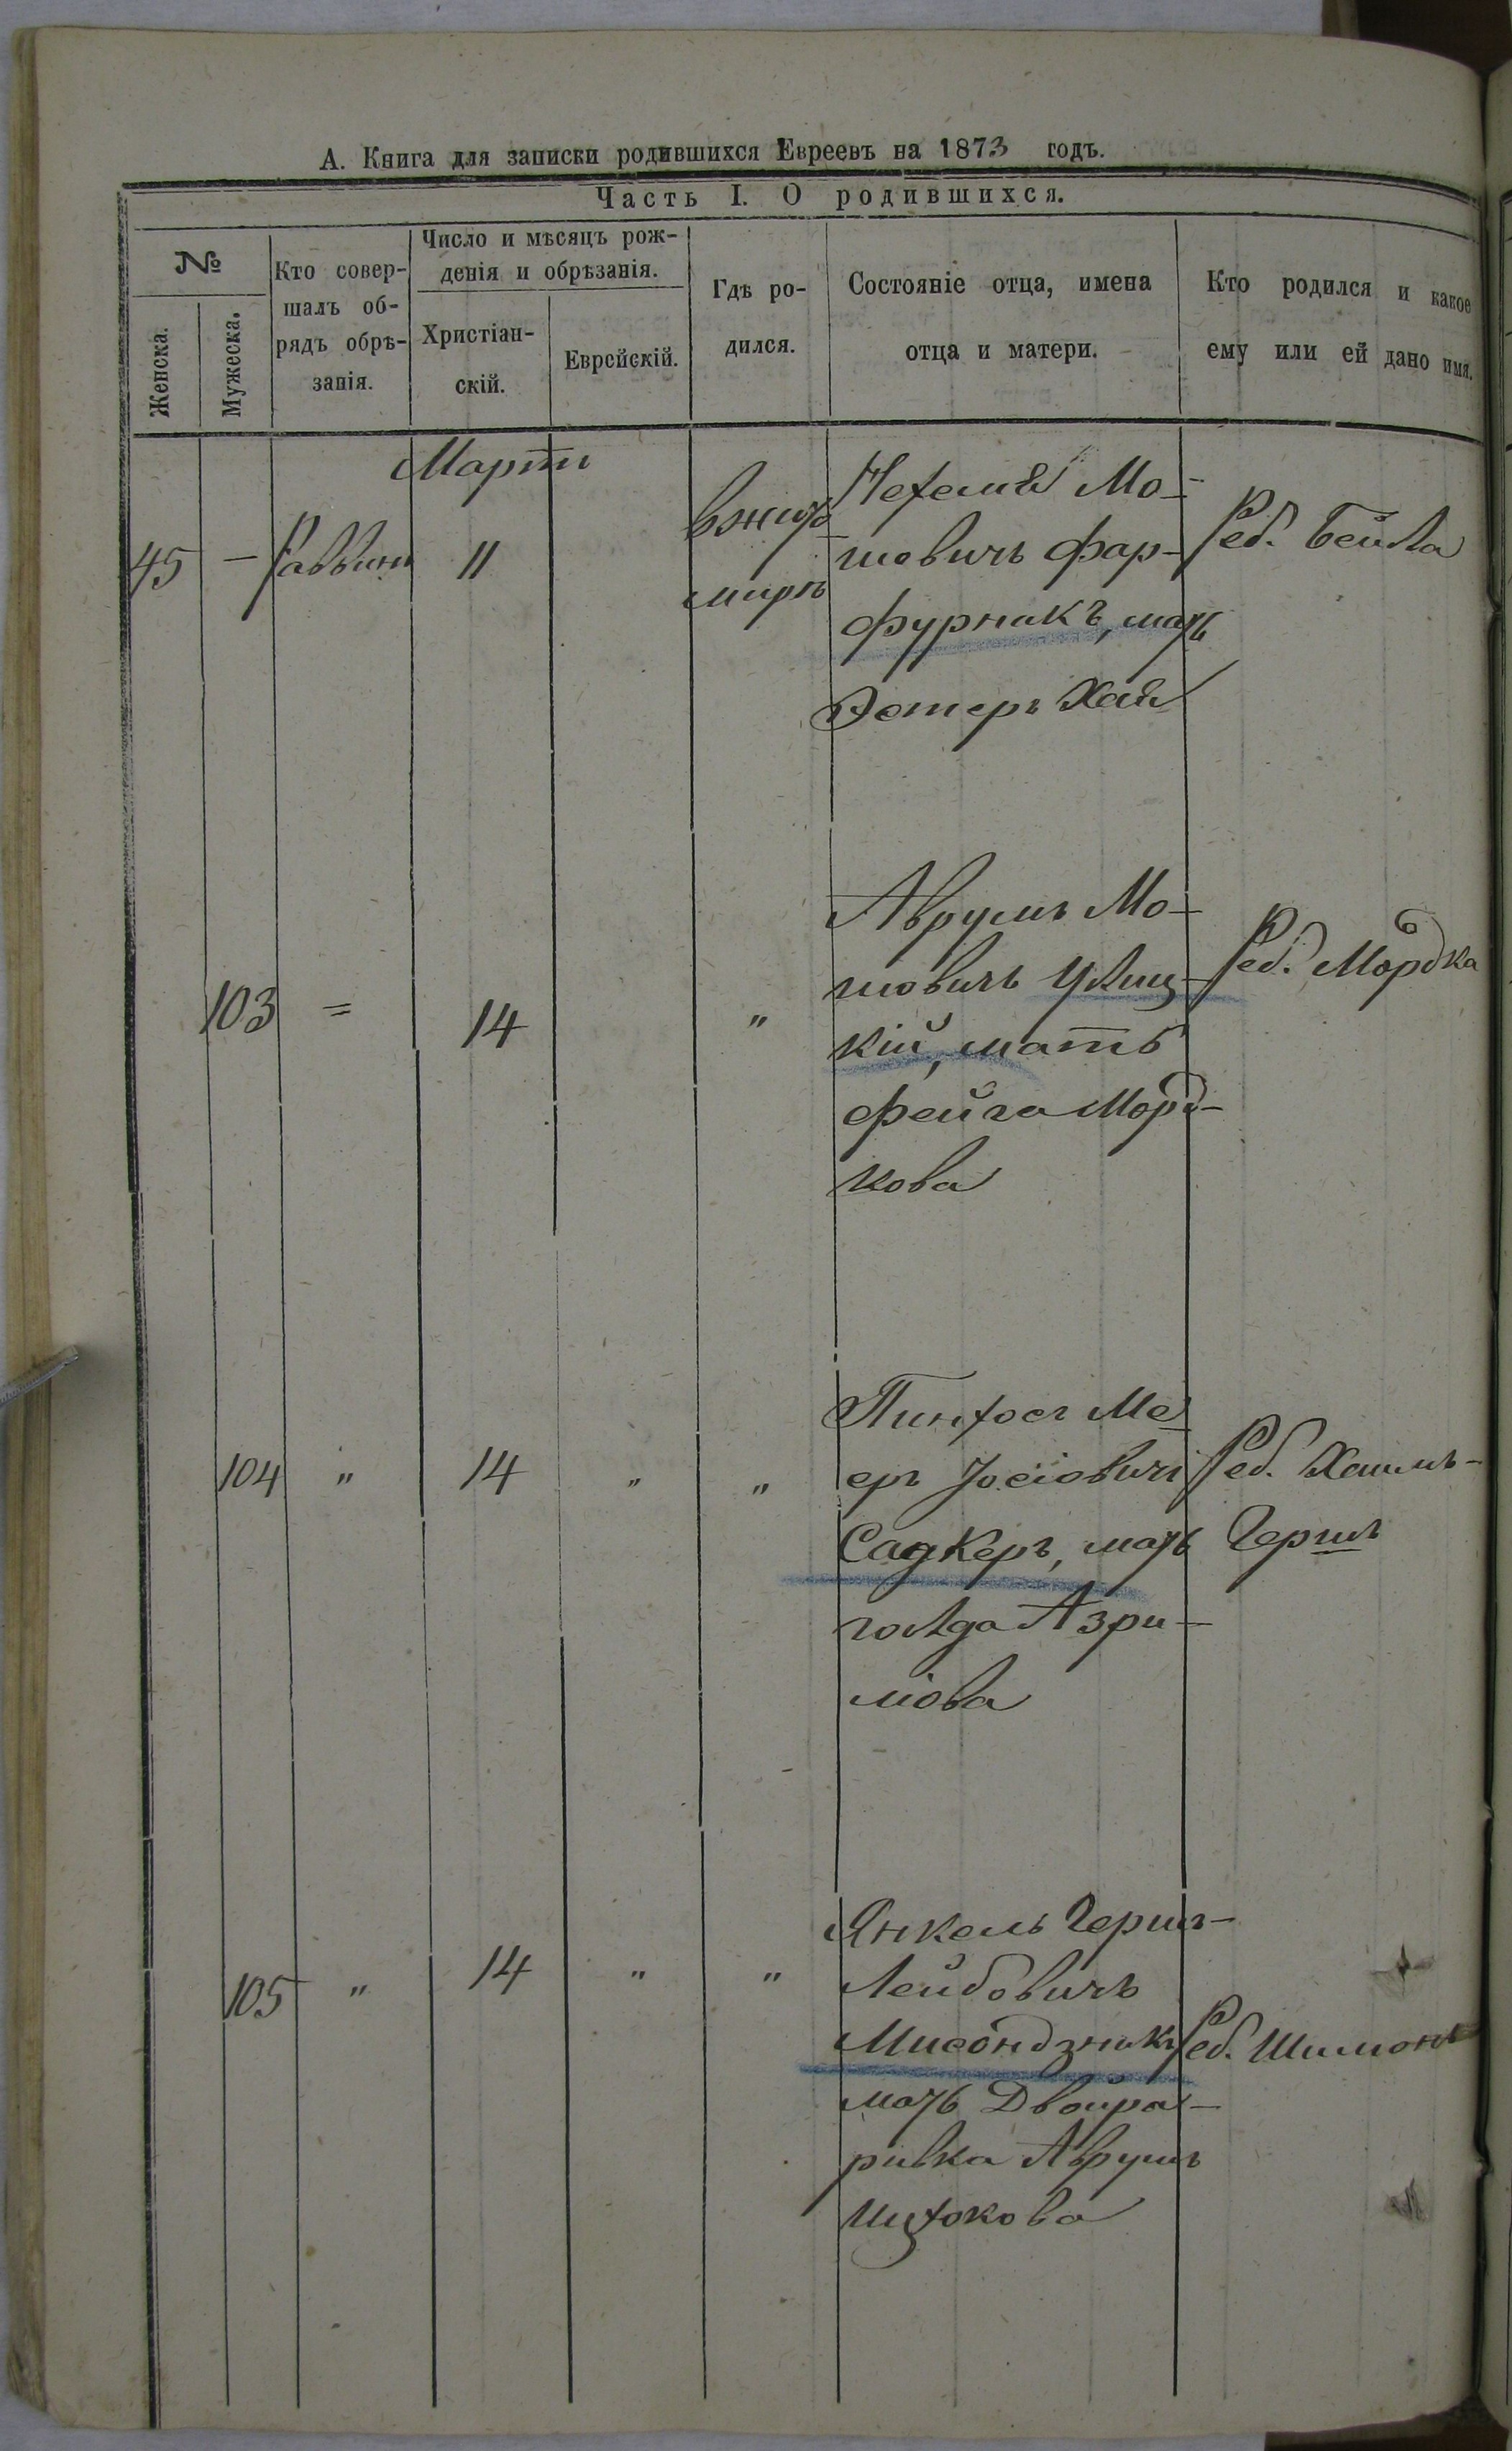 А. Книга для записки родившихся Евреевъ на 1873 годъ.
Часть I. О родившихся.
№
Женска.
Мужеска.
Кто совер-
шалъ об-
рядъ обрѣ-
занія.
Число и мѣсяцъ рож-
денія и обрѣзанія.
Христіан-
скій.
Еврейскій.
Гдѣ ро-
дился.
Состояніе отца, имена
отца и матери.
Кто родился и какое
ему или ей дано имя.
Мартъ
45 — Раввинъ 11
вжито
мирѣ
Нехемія Мо-
шовичъ фар-
фурникъ, мать
Эстеръ Хая
Реб. Бейла
103 = 14 "
Аврумъ Мо-
шовичъ Улиц-
кій, мать
фейга Морд-
кова
Реб. Мордка
104 " 14 " "
Пинхосъ Ме-
еръ Іосіовичъ
Садкеръ, мать
голда Азри-
лiова
Реб. Хаимъ-
Гершъ
105 " 14 " "
Янкель Гершъ-
Лейбовичъ
Мисондзникъ
мать Двойра-
ривка Аврумъ
Ицхокова
Реб. Шимонъ